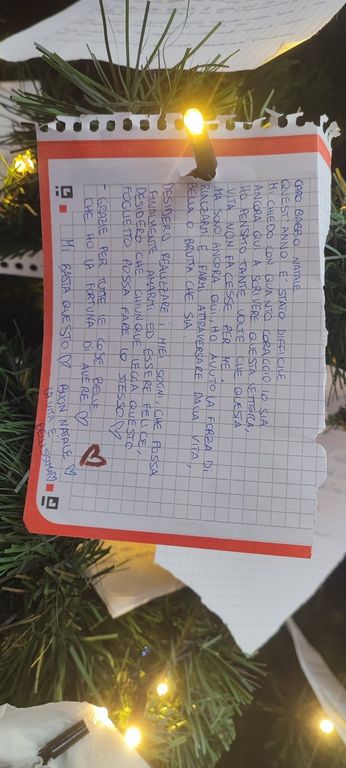 CARO BABBO NATALE,
QUEST'ANNO È STATO DIFFICILE
MI CHIEDO CON QUANTO CORAGGIO IO SIA
ANCORA QUI A SCRIVERE QUESTA LETTERA,
HO PENSATO TANTE VOLTE CHE QUESTA
VITA NON FACESSE PER ME.
MA SONO ANCORA QUI, HO AVUTO LA FORZA DI
RIALZARMI E FARMI ATTRAVERSARE DALLA VITA,
BELLA O BRUTTA CHE SIA.
DESIDERO REALIZZARE I MIEI SOGNI, CHE POSSA
FINALMENTE AMARMI ED ESSERE FELICE,
DESIDERO CHE CHIUNQUE LEGGA QUESTO
FOGLIETTO POSSA FARE LO STESSO ♡
- GRAZIE PER TUTTE LE COSE BELLE
CHE HO LA FORTUNA DI AVERE ♡
MI BASTA QUESTO ♡ BUON NATALE ♡
LA VITA È